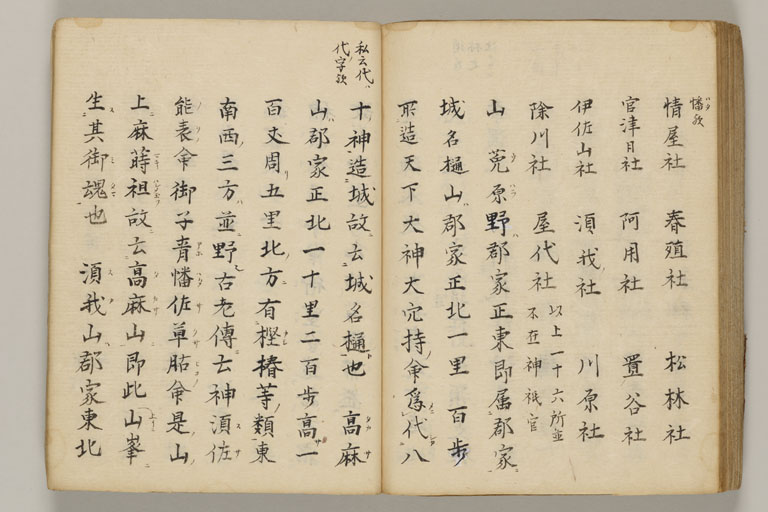 情屋社 春殖社 松林社
幡歟
官津日社 阿用社 置谷社
伊佐山社 須我社 川原社
除川社 屋代社 以上一十六所並不在神祇官
山 菟原野郡家正東即属郡家
城名樋山郡家正北一里百歩
所造天下大神大穴持命為伐八
私云代ハ
代ノ字歟
十神造城故云城名樋也 高麻
山郡家正北一十里二百歩高一
百丈周五里北方有樫椿等類東
南西三方並野古老傳云神須佐
能袁命御子青幡佐草昭命是山
上麻蒔祖故云高麻山即此山峯
生其御魂也 須我山郡家東北